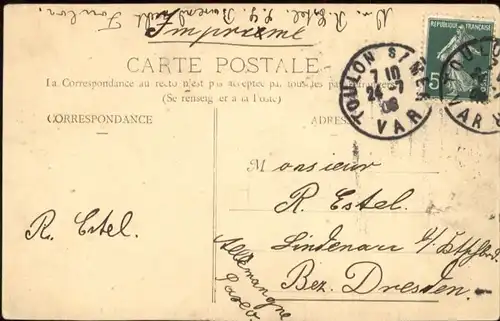 Imprimé
CARTE POSTALE
La Correspondance au recto n'est pas acceptée par tous les pays
(Se renseig et à la Poste)
CORRESPONDANCE
ADRES
TOULON S/MER
7 10
24-7
08
VAR
REPUBLIQUE FRANÇAISE
5
TOULO
VAR
Monsieur
R. Estel.
Lindenau
Bez. Dresden.
R. Estel.
Allemagne